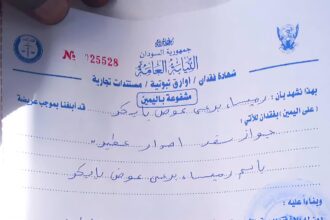 جمهورية السودان
النيابة العامة
№ 025528
شهادة فقدان / أوراق ثبوتية / مستندات تجارية
مشفوعة باليمين
بهذا نشهد بأن : رميساء يحيى عوض بابكر قد أبلغنا بموجب عريضة
(على اليمين) بفقدان الآتي :
جواز سفر اصدار عطبره
باسم رميساء يحيى عوض بابكر
وبناءاً عليه :